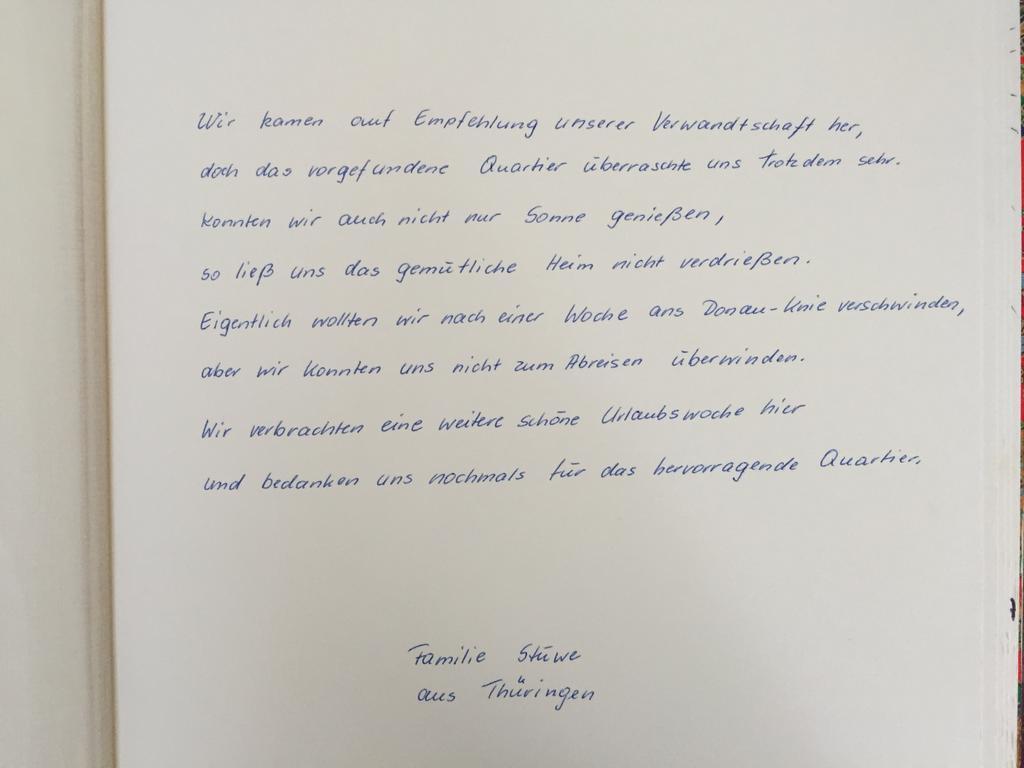 Wir kamen auf Empfehlung unserer Verwandtschaft her,
doch das vorgefundene Quartier überraschte uns trotzdem sehr.
Konnten wir auch nicht nur Sonne genießen,
so ließ uns das gemütliche Heim nicht verdrießen.
Eigentlich wollten wir nach einer Woche ans Donau-Knie verschwinden,
aber wir konnten uns nicht zum Abreisen überwinden.
Wir verbrachten eine weitere schöne Urlaubswoche hier
und bedanken uns nochmals für das hervorragende Quartier.
Familie Stüwe
aus Thüringen